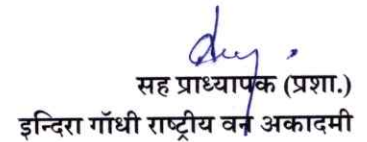 सह प्राध्यापक (प्रशा.)
इन्दिरा गाँधी राष्ट्रीय वन अकादमी